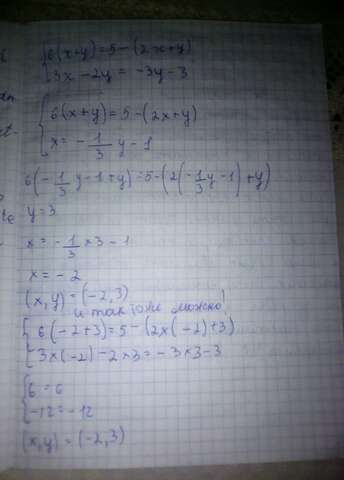 {6(x+y)=5-(2x+y)
3x-2y=-3y-3
{6(x+y)=5-(2x+y)
x=-1/3 y-1
6(-1/3 y-1+y)=5-(2(-1/3 y-1)+y)
y=3
x=-1/3×3-1
x=-2
(x,y)=(-2,3)
и так тоже можно!
{6(-2+3)=5-(2×(-2)+3)
3×(-2)-2×3=-3×3-3
{6=6
-12=-12
(x,y)=(-2,3)